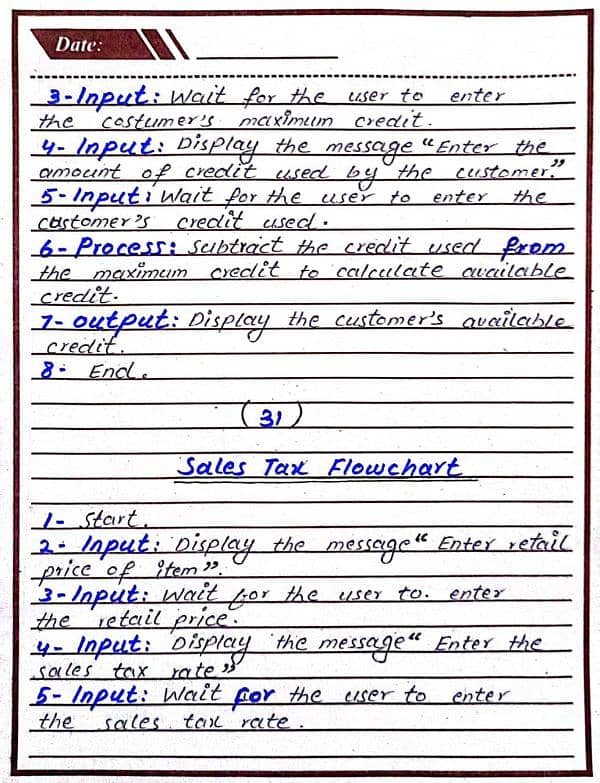 Date:
3-Input: Wait for the user to enter
the costumer's maximum credit.
4- Input: Display the message "Enter the
amount of credit used by the customer."
5-Input: Wait for the user to enter the
customer's credit used.
6- Process: Subtract the credit used from
the maximum credit to calculate available
credit.
7- output: Display the customer's available
credit.
8- End.
(31)
Sales Tax Flowchart
1- Start.
2- Input: Display the message "Enter retail
price of item".
3-Input: Wait for the user to. enter
the retail price.
4- Input: Display the message "Enter the
sales tax rate"
5- Input: Wait for the user to enter
the sales tax rate.